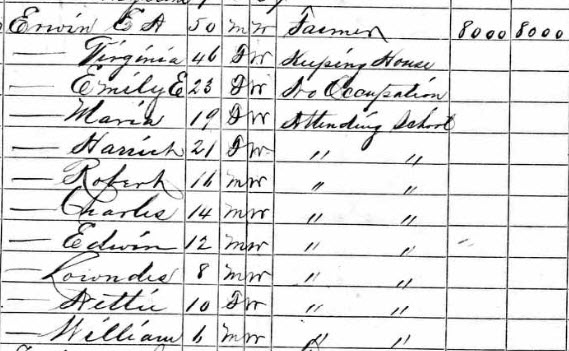 Erwin E A 50 m W Farmer 8000 8000
— Virginia 46 F W Keeping House
— Emily E 23 F W No Occupation
— Maria 19 F W Attending School
— Harriet 21 F W " "
— Robert 16 m W " "
— Charles 14 m W " "
— Edwin 12 m W " "
— Lowndes 8 m W " "
— Nettie 10 F W " "
— William 6 m W " "